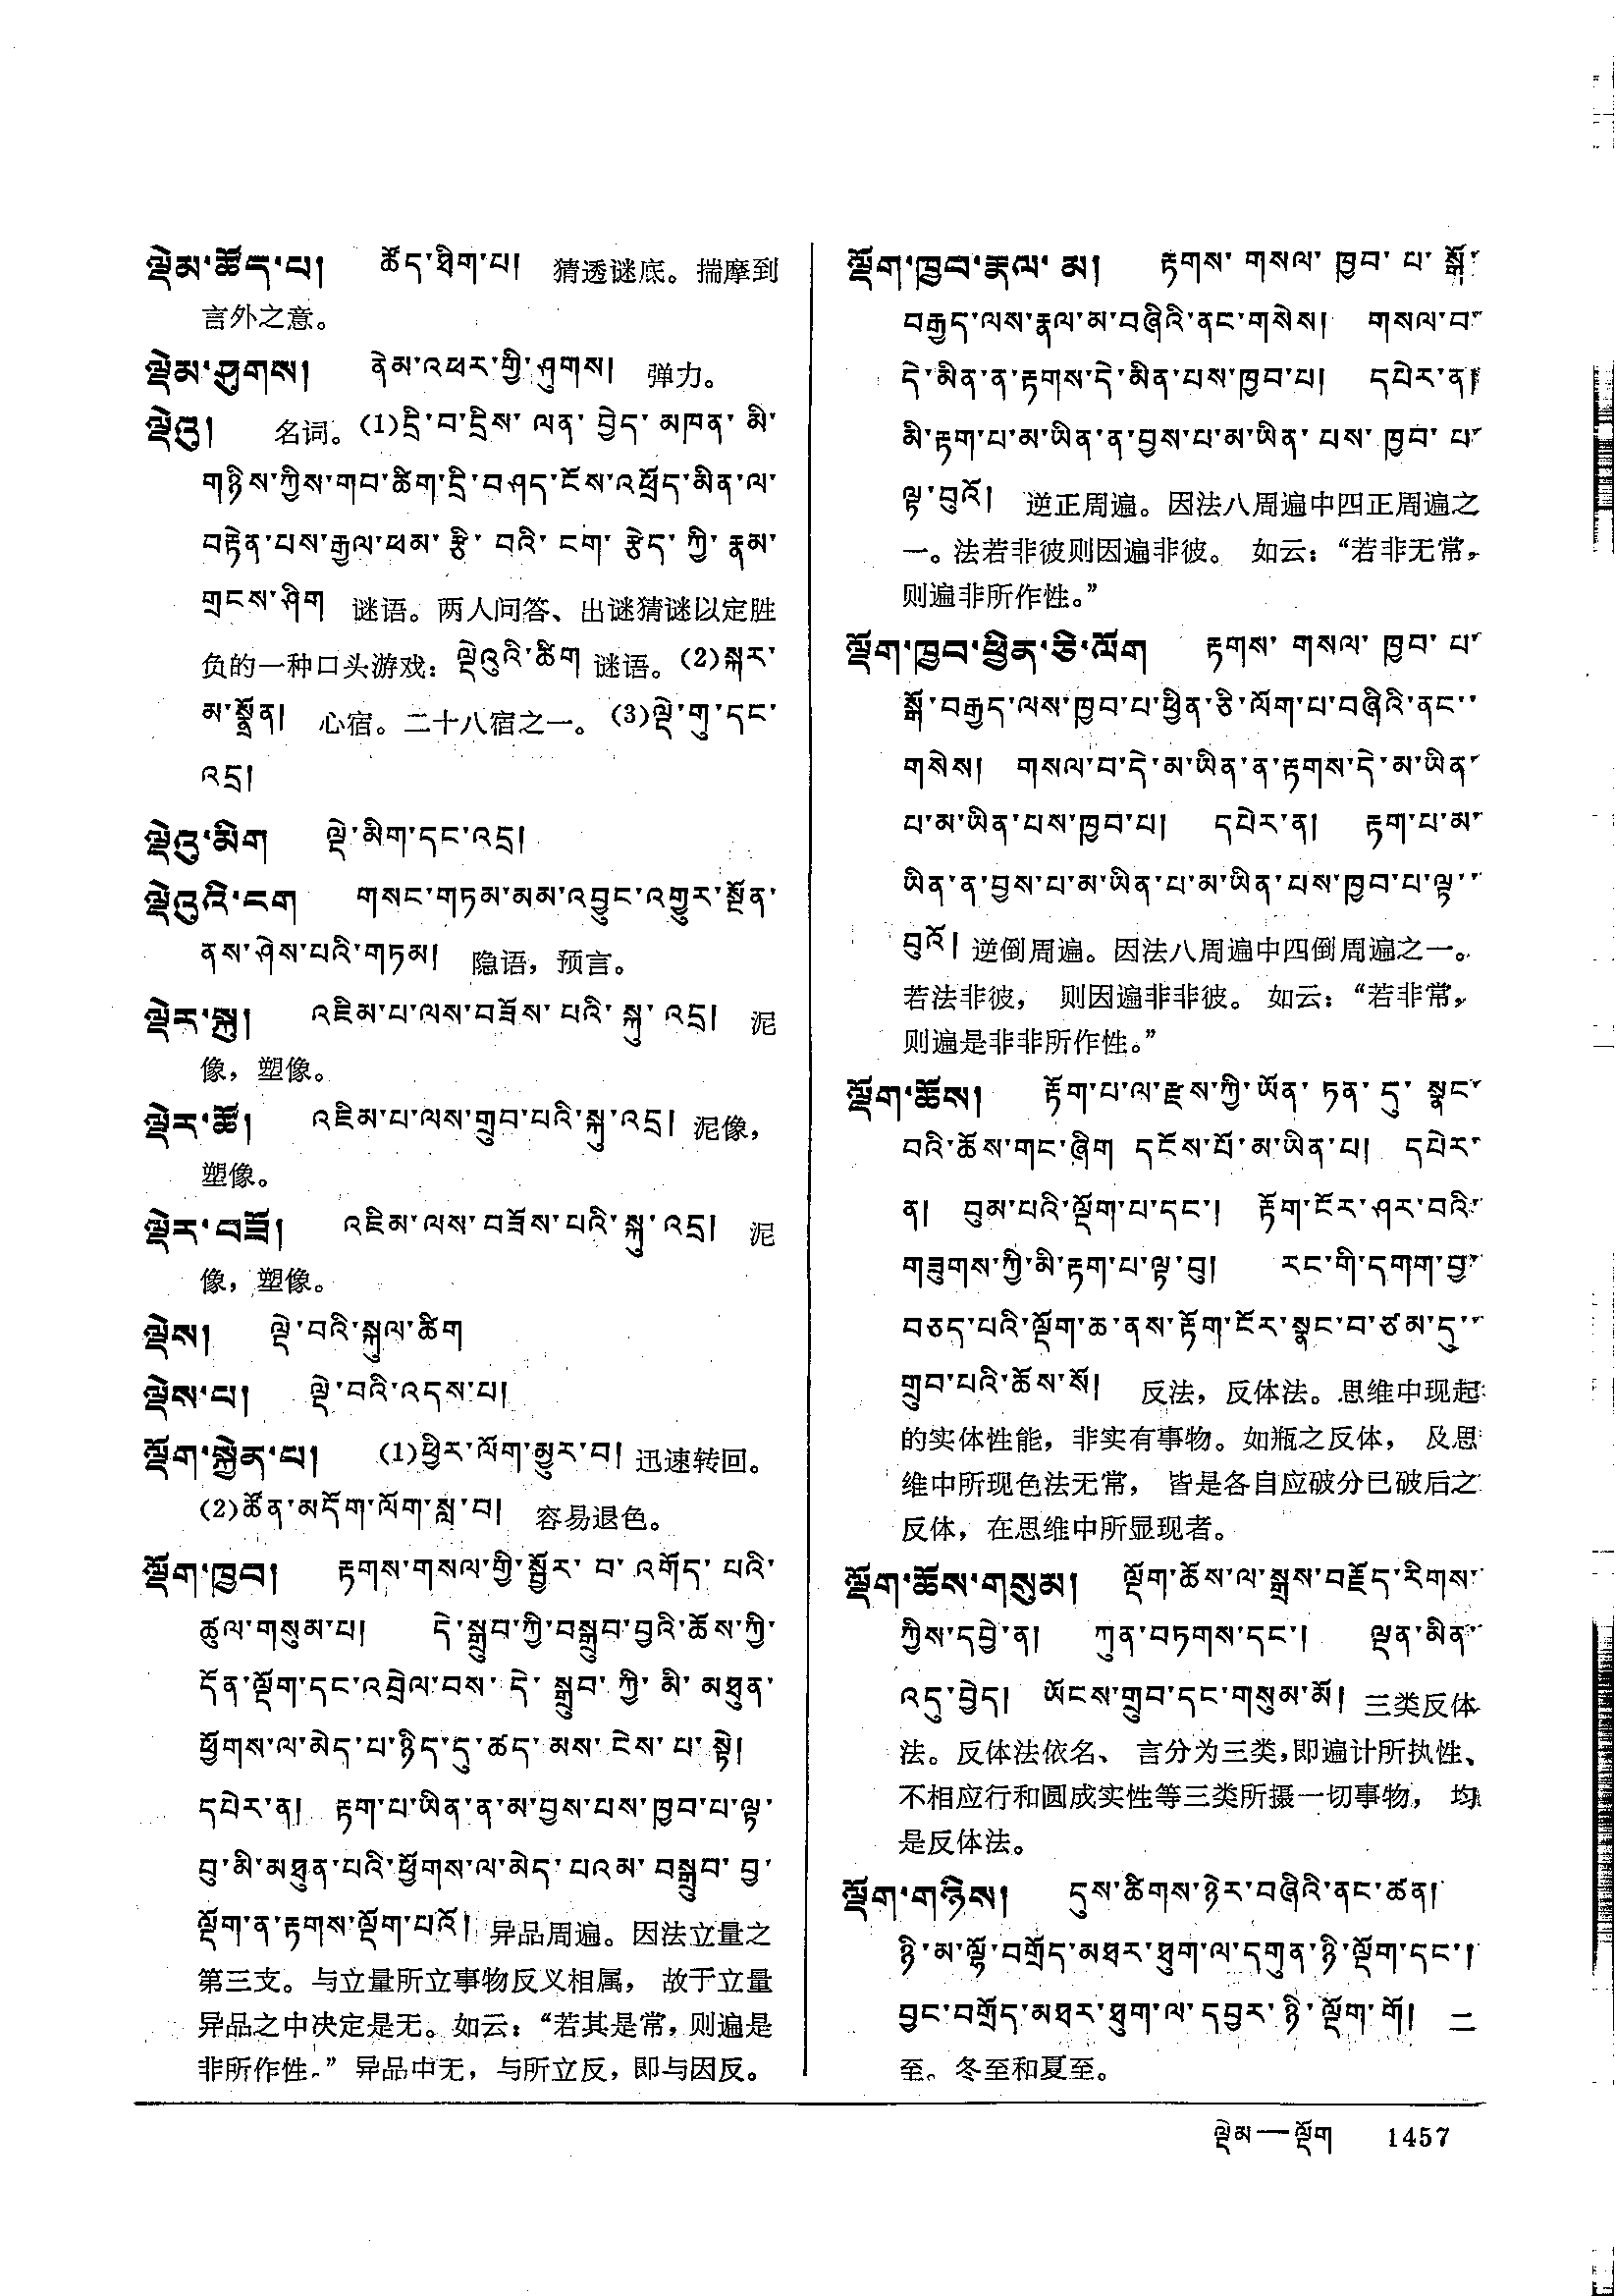 ལྡེམ་ཚོད་པ།  ཚོད་ཐིག་པ།  猜透谜底。揣摩到
言外之意。
ལྡེམ་ཤུགས།  ནེམ་འཕར་གྱི་ཤུགས།  弹力。
ལྡེའུ།  名词。(1)དྲི་བ་དྲིས་ ལན་ བྱེད་ མཁན་ མི་
གཉིས་ཀྱིས་གབ་ཚིག་དྲི་བཤད་ངོས་འཕྲོད་མིན་ལ་
བརྟེན་པས་རྒྱལ་ཕམ་ རྩི་ བའི་ ངག་ རྩེད་ ཀྱི་ རྣམ་
གྲངས་ཤིག 谜语。两人问答、出谜猜谜以定胜
负的一种口头游戏：ལྡེའུའི་ཚིག 谜语。(2)སྐར་
མ་སྣྲོན།  心宿。二十八宿之一。(3)ལྡེ་གུ་དང་
འདྲ།
ལྡེའུ་མིག  ལྡེ་མིག་དང་འདྲ།
ལྡེའུའི་ངག  གསང་གཏམ་མམ་འབྱུང་འགྱུར་སྔོན་
ནས་ཤེས་པའི་གཏམ།  隐语，预言。
ལྡེར་སྐུ།  འཇིམ་པ་ལས་བཟོས་ པའི་ སྐུ་ འདྲ།  泥
像，塑像。
ལྡེར་ཚོ།  འཇིམ་པ་ལས་གྲུབ་པའི་སྐུ་འདྲ། 泥像，
塑像。
ལྡེར་བཟོ།  འཇིམ་ལས་བཟོས་པའི་སྐུ་འདྲ།  泥
像，塑像。
ལྡེས།  ལྡེ་བའི་སྐུལ་ཚིག
ལྡེས་པ།  ལྡེ་བའི་འདས་པ།
ལྡོག་སྐྱེན་པ།  (1)ཕྱིར་ལོག་མྱུར་བ། 迅速转回。
(2)ཚོན་མདོག་ལོག་སླ་བ།  容易退色。
ལྡོག་ཁྱབ།  རྟགས་གསལ་གྱི་སྦྱོར་ བ་ འགོད་ པའི་
ཚུལ་གསུམ་པ།  དེ་སྒྲུབ་ཀྱི་བསྒྲུབ་བྱའི་ཆོས་ཀྱི་
དོན་ལྡོག་དང་འབྲེལ་བས་ དེ་ སྒྲུབ་ ཀྱི་ མི་ མཐུན་
ཕྱོགས་ལ་མེད་པ་ཉིད་དུ་ཚད་ མས་ ངེས་ པ་ སྟེ།
དཔེར་ན།  རྟག་པ་ཡིན་ན་མ་བྱས་པས་ཁྱབ་པ་ལྟ་
བུ་མི་མཐུན་པའི་ཕྱོགས་ལ་མེད་ པའམ་ བསྒྲུབ་ བྱ་
ལྡོག་ན་རྟགས་ལྡོག་པའོ། 异品周遍。因法立量之
第三支。与立量所立事物反义相属， 故于立量
异品之中决定是无。如云：“若其是常，则遍是
非所作性。” 异品中无，与所立反，即与因反。
ལྡོག་ཁྱབ་རྣལ་ མ།  རྟགས་ གསལ་ ཁྱབ་ པ་ སྒོ་
བརྒྱད་ལས་རྣལ་མ་བཞིའི་ནང་གསེས།  གསལ་བ་
དེ་མིན་ན་རྟགས་དེ་མིན་པས་ཁྱབ་པ།  དཔེར་ན།
མི་རྟག་པ་མ་ཡིན་ན་བྱས་པ་མ་ཡིན་ པས་ ཁྱབ་ པ་
ལྟ་བུའོ།  逆正周遍。因法八周遍中四正周遍之
一。法若非彼则因遍非彼。 如云：“若非无常，
则遍非所作性。”
ལྡོག་ཁྱབ་ཕྱིན་ཅི་ལོག  རྟགས་ གསལ་ ཁྱབ་ པ་
སྒོ་བརྒྱད་ལས་ཁྱབ་པ་ཕྱིན་ཅི་ལོག་པ་བཞིའི་ནང་
གསེས།  གསལ་བ་དེ་མ་ཡིན་ན་རྟགས་དེ་མ་ཡིན་
པ་མ་ཡིན་པས་ཁྱབ་པ།  དཔེར་ན།  རྟག་པ་མ་
ཡིན་ན་བྱས་པ་མ་ཡིན་པ་མ་ཡིན་པས་ཁྱབ་པ་ལྟ་
བུའོ། 逆倒周遍。因法八周遍中四倒周遍之一。
若法非彼， 则因遍非非彼。 如云：“若非常，
则遍是非非所作性。”
ལྡོག་ཆོས།  རྟོག་པ་ལ་རྫས་ཀྱི་ ཡོན་ ཏན་ དུ་ སྣང་
བའི་ཆོས་གང་ཞིག དངོས་པོ་མ་ཡིན་པ།  དཔེར་
ན།  བུམ་པའི་ལྡོག་པ་དང་།  རྟོག་ངོར་ཤར་བའི་
གཟུགས་ཀྱི་མི་རྟག་པ་ལྟ་བུ།  རང་གི་དགག་བྱ་
བཅད་པའི་ལྡོག་ཆ་ནས་རྟོག་ངོར་སྣང་བ་ཙམ་དུ་
གྲུབ་པའི་ཆོས་སོ།  反法，反体法。思维中现起
的实体性能，非实有事物。如瓶之反体， 及思
维中所现色法无常， 皆是各自应破分已破后之
反体，在思维中所显现者。
ལྡོག་ཆོས་གསུམ།  ལྡོག་ཆོས་ལ་སྒྲས་བརྗོད་རིགས་
ཀྱིས་དབྱེ་ན།  ཀུན་བཏགས་དང་།  ལྡན་མིན་
འདུ་བྱེད།  ཡོངས་གྲུབ་དང་གསུམ་མོ། 三类反体
法。反体法依名、 言分为三类，即遍计所执性、
不相应行和圆成实性等三类所摄一切事物， 均
是反体法。
ལྡོག་གཉིས།  དུས་ཚིགས་ཉེར་བཞིའི་ནང་ཚན།
ཉི་མ་ལྷོ་བགྲོད་མཐར་ཐུག་ལ་དགུན་ཉི་ལྡོག་དང་།
བྱང་བགྲོད་མཐར་ཐུག་ལ་དབྱར་ཉི་ལྡོག་གོ།  二
至。冬至和夏至。
ལྡེམ—ལྡོག  1457